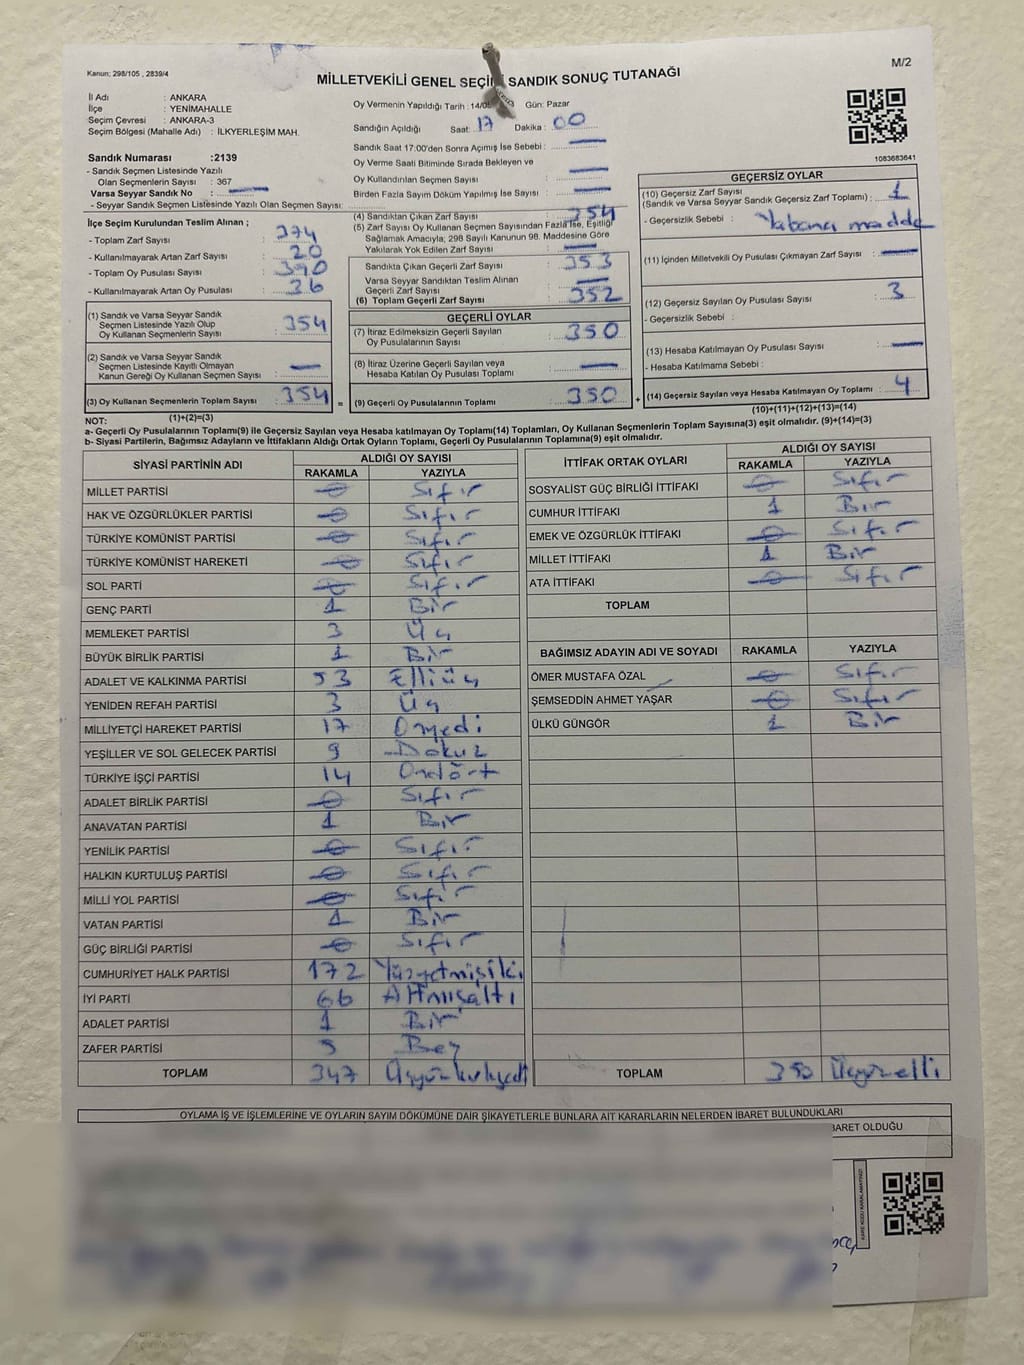 Kanun; 298/105 , 2839/4
M/2
MİLLETVEKİLİ GENEL SEÇİMİ SANDIK SONUÇ TUTANAĞI
İl Adı : ANKARA
İlçe : YENİMAHALLE
Seçim Çevresi : ANKARA-3
Seçim Bölgesi (Mahalle Adı) : İLKYERLEŞİM MAH.
Sandık Numarası :2139
- Sandık Seçmen Listesinde Yazılı
Olan Seçmenlerin Sayısı : 367
Varsa Seyyar Sandık No :
- Seyyar Sandık Seçmen Listesinde Yazılı Olan Seçmen Sayısı:
Oy Vermenin Yapıldığı Tarih : 14/0 Gün: Pazar
Sandığın Açıldığı Saat: 17 Dakika : 00
Sandık Saat 17:00'den Sonra Açımış İse Sebebi :
Oy Verme Saati Bitiminde Sırada Bekleyen ve
Oy Kullandırılan Seçmen Sayısı :
Birden Fazla Sayım Döküm Yapılmış İse Sayısı :
1083683641
İlçe Seçim Kurulundan Teslim Alınan ;
- Toplam Zarf Sayısı : 374
- Kullanılmayarak Artan Zarf Sayısı : 20
- Toplam Oy Pusulası Sayısı : 390
- Kullanılmayarak Artan Oy Pusulası : 36
(1) Sandık ve Varsa Seyyar Sandık
Seçmen Listesinde Yazılı Olup
Oy Kullanan Seçmenlerin Sayısı : 354
(2) Sandık ve Varsa Seyyar Sandık
Seçmen Listesinde Kayıtlı Olmayan
Kanun Gereği Oy Kullanan Seçmen Sayısı : —
(3) Oy Kullanan Seçmenlerin Toplam Sayısı : 354
(1)+(2)=(3)
(4) Sandıktan Çıkan Zarf Sayısı : 354
(5) Zarf Sayısı Oy Kullanan Seçmen Sayısından Fazla İse, Eşitliği
Sağlamak Amacıyla; 298 Sayılı Kanunun 98. Maddesine Göre
Yakılarak Yok Edilen Zarf Sayısı : —
Sandıkta Çıkan Geçerli Zarf Sayısı : 353
Varsa Seyyar Sandıktan Teslim Alınan
Geçerli Zarf Sayısı : —
(6) Toplam Geçerli Zarf Sayısı : 352
GEÇERLİ OYLAR
(7) İtiraz Edilmeksizin Geçerli Sayılan
Oy Pusulalarının Sayısı : 350
(8) İtiraz Üzerine Geçerli Sayılan veya
Hesaba Katılan Oy Pusulası Toplamı : —
= (9) Geçerli Oy Pusulalarının Toplamı : 350 +
GEÇERSİZ OYLAR
(10) Geçersiz Zarf Sayısı
(Sandık ve Varsa Seyyar Sandık Geçersiz Zarf Toplamı) : 1
- Geçersizlik Sebebi : Yabancı madde
(11) İçinden Milletvekili Oy Pusulası Çıkmayan Zarf Sayısı : —
(12) Geçersiz Sayılan Oy Pusulası Sayısı : 3
- Geçersizlik Sebebi :
(13) Hesaba Katılmayan Oy Pusulası Sayısı : —
- Hesaba Katılmama Sebebi :
(14) Geçersiz Sayılan veya Hesaba Katılmayan Oy Toplamı : 4
(10)+(11)+(12)+(13)=(14)
NOT:
a- Geçerli Oy Pusulalarının Toplamı(9) ile Geçersiz Sayılan veya Hesaba katılmayan Oy Toplamı(14) Toplamları, Oy Kullanan Seçmenlerin Toplam Sayısına(3) eşit olmalıdır. (9)+(14)=(3)
b- Siyasi Partilerin, Bağımsız Adayların ve İttifakların Aldığı Ortak Oyların Toplamı, Geçerli Oy Pusulalarının Toplamına(9) eşit olmalıdır.
SİYASİ PARTİNİN ADI ALDIĞI OY SAYISI
RAKAMLA YAZIYLA
MİLLET PARTİSİ 0 Sıfır
HAK VE ÖZGÜRLÜKLER PARTİSİ 0 Sıfır
TÜRKİYE KOMÜNİST PARTİSİ 0 Sıfır
TÜRKİYE KOMÜNİST HAREKETİ 0 Sıfır
SOL PARTİ 0 Sıfır
GENÇ PARTİ 1 Bir
MEMLEKET PARTİSİ 3 Üç
BÜYÜK BİRLİK PARTİSİ 1 Bir
ADALET VE KALKINMA PARTİSİ 53 Elliüç
YENİDEN REFAH PARTİSİ 3 Üç
MİLLİYETÇİ HAREKET PARTİSİ 17 Onyedi
YEŞİLLER VE SOL GELECEK PARTİSİ 9 Dokuz
TÜRKİYE İŞÇİ PARTİSİ 14 Ondört
ADALET BİRLİK PARTİSİ 0 Sıfır
ANAVATAN PARTİSİ 1 Bir
YENİLİK PARTİSİ 0 Sıfır
HALKIN KURTULUŞ PARTİSİ 0 Sıfır
MİLLİ YOL PARTİSİ 0 Sıfır
VATAN PARTİSİ 1 Bir
GÜÇ BİRLİĞİ PARTİSİ 0 Sıfır
CUMHURİYET HALK PARTİSİ 172 Yüzyetmişiki
İYİ PARTİ 66 Altmışaltı
ADALET PARTİSİ 1 Bir
ZAFER PARTİSİ 5 Beş
TOPLAM 347 Üçyüzkırkyedi
İTTİFAK ORTAK OYLARI ALDIĞI OY SAYISI
RAKAMLA YAZIYLA
SOSYALİST GÜÇ BİRLİĞİ İTTİFAKI 0 Sıfır
CUMHUR İTTİFAKI 1 Bir
EMEK VE ÖZGÜRLÜK İTTİFAKI 0 Sıfır
MİLLET İTTİFAKI 1 Bir
ATA İTTİFAKI 0 Sıfır
TOPLAM
BAĞIMSIZ ADAYIN ADI VE SOYADI RAKAMLA YAZIYLA
ÖMER MUSTAFA ÖZAL 0 Sıfır
ŞEMSEDDİN AHMET YAŞAR 0 Sıfır
ÜLKÜ GÜNGÖR 1 Bir
TOPLAM 350 Üçyüzelli
OYLAMA İŞ VE İŞLEMLERİNE VE OYLARIN SAYIM DÖKÜMÜNE DAİR ŞİKAYETLERLE BUNLARA AİT KARARLARIN NELERDEN İBARET BULUNDUKLARI
BARET OLDUĞU